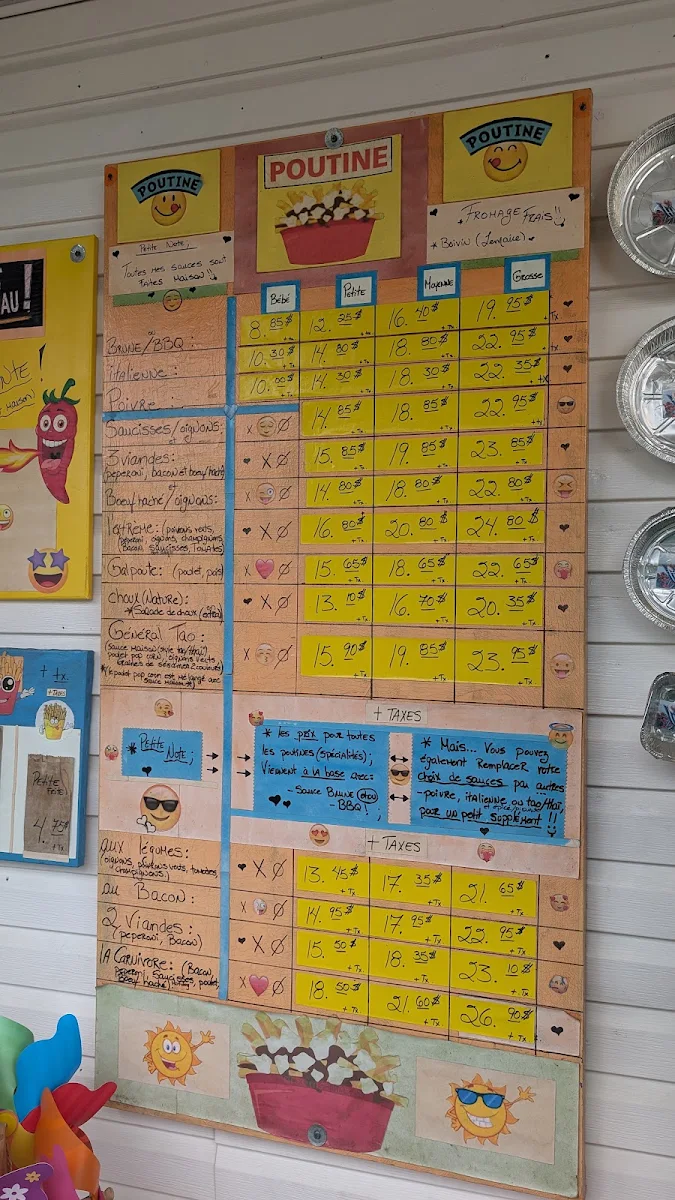 POUTINE
POUTINE
POUTINE
Petite Note,
Toutes mes sauces sont
faites maison!!
Fromage Frais!!
* Boivin (Lemaire)
Bébé Petite Moyenne Grosse
Brune/BBQ: 8.85$ 12.25$ 16.40$ 19.95$ +Tx
italienne: 10.30$ 14.80$ 18.80$ 22.95$ +Tx
Poivre: 10.00$ 14.30$ 18.30$ 22.35$ +Tx
Saucisses/oignons: X Ø 14.85$ 18.85$ 22.95$ +Tx
3 viandes: X Ø 15.85$ 19.85$ 23.85$ +Tx
(peperoni, bacon et boeuf haché)
Boeuf haché/oignons: X Ø 14.80$ 18.80$ 22.80$ +Tx
l'extrême: (poivrons verts, X Ø 16.80$ 20.80$ 24.80$ +Tx
peperoni, oignons, champignons,
Bacon, saucisses, tomates)
Galpoute: (poulet, pois) X Ø 15.65$ 18.65$ 22.65$ +Tx
choux (Nature): X Ø 13.10$ 16.70$ 20.35$ +Tx
* Salade de choux
Général Tao: X Ø 15.90$ 19.85$ 23.95$ +Tx
(sauce maison (style tao/thaï)
poulet pop corn, oignons verts
graines de sésames 2 couleurs)
* le poulet pop corn est mélangé avec
sauce maison
+ TAXES
* Petite
Note;
* les prix pour toutes
les poutines (spécialités);
Viennent à la base avec:
- Sauce Brune (ou)
- BBQ!
* Mais... Vous pouvez
également Remplacer votre
choix de sauces par autres
- poivre, italienne ou tao/thaï,
pour un petit supplément!!
+ TAXES
aux légumes: X Ø 13.45$ 17.35$ 21.65$ +Tx
(oignons, poivrons verts, tomates,
champignons)
au Bacon: X Ø 14.95$ 17.95$ 22.95$ +Tx
2 Viandes: X Ø 15.50$ 18.35$ 23.10$ +Tx
(peperoni, Bacon)
la Carnivore: (Bacon, X Ø 18.50$ 21.60$ 26.90$ +Tx
peperoni, saucisses, poulet,
Boeuf haché)
AU!
+ tx.
+TAXES
Petite
4.75$